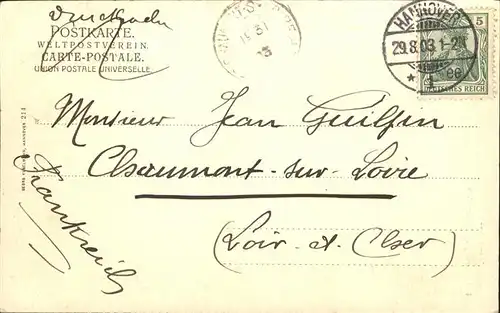 Drucksache
POSTKARTE.
WELTPOSTVEREIN.
CARTE-POSTALE.
UNION POSTALE UNIVERSELLE.
HANNOVER
29.8.03.1-2N
* 1 ee
5
DEUTSCHES REICH
13
Monsieur Jean Guilpin
Chaumont-sur-Loire
(Loir-et-Cher)
Frankreich
HANNOVER 214